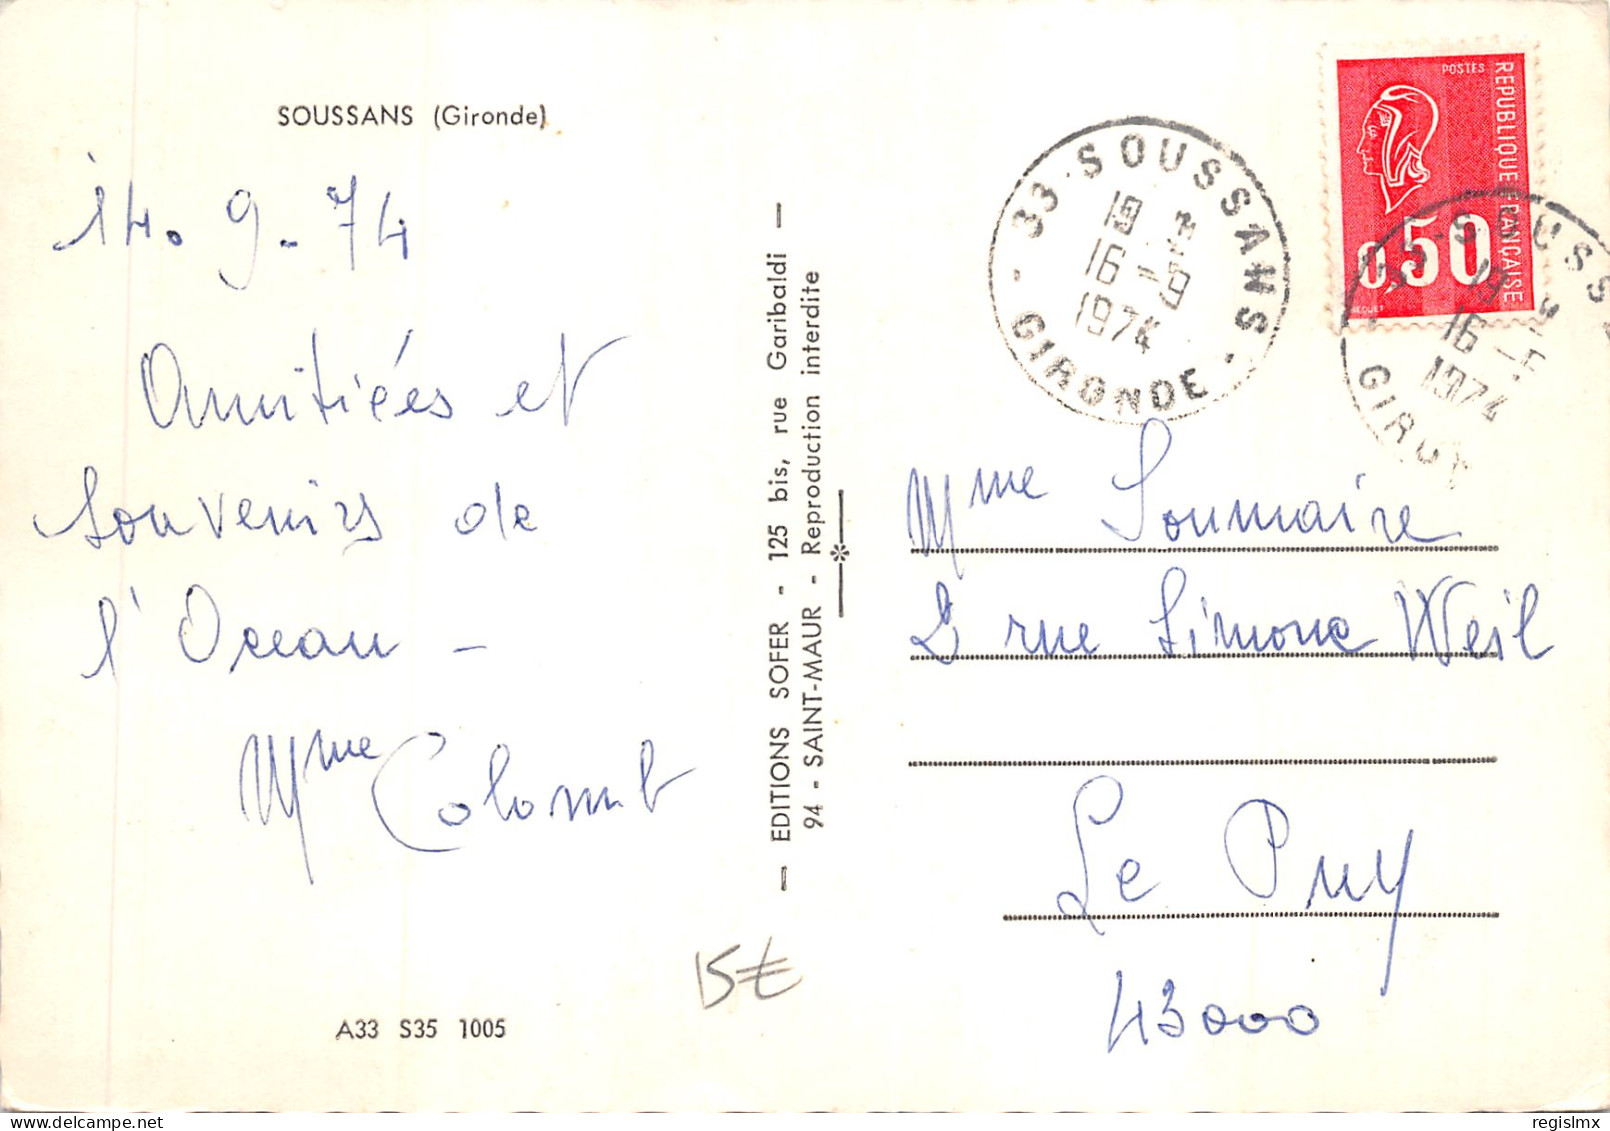 SOUSSANS (Gironde)
14.9.74
Amitiées et
souvenirs de
l'Ocean -
Mme Colomb
A33 S35 1005
15€
— EDITIONS SOFER - 125 bis, rue Garibaldi —
94 - SAINT-MAUR - Reproduction interdite
33 - SOUSSANS
19
16 - 9
1974
- GIRONDE -
POSTES
REPUBLIQUE FRANCAISE
0,50
- SOUSS
19
16 -
1974
GIRON
Mme Soumaire
2 rue Simone Weil
Le Puy
43000
delcampe.net
regislmx